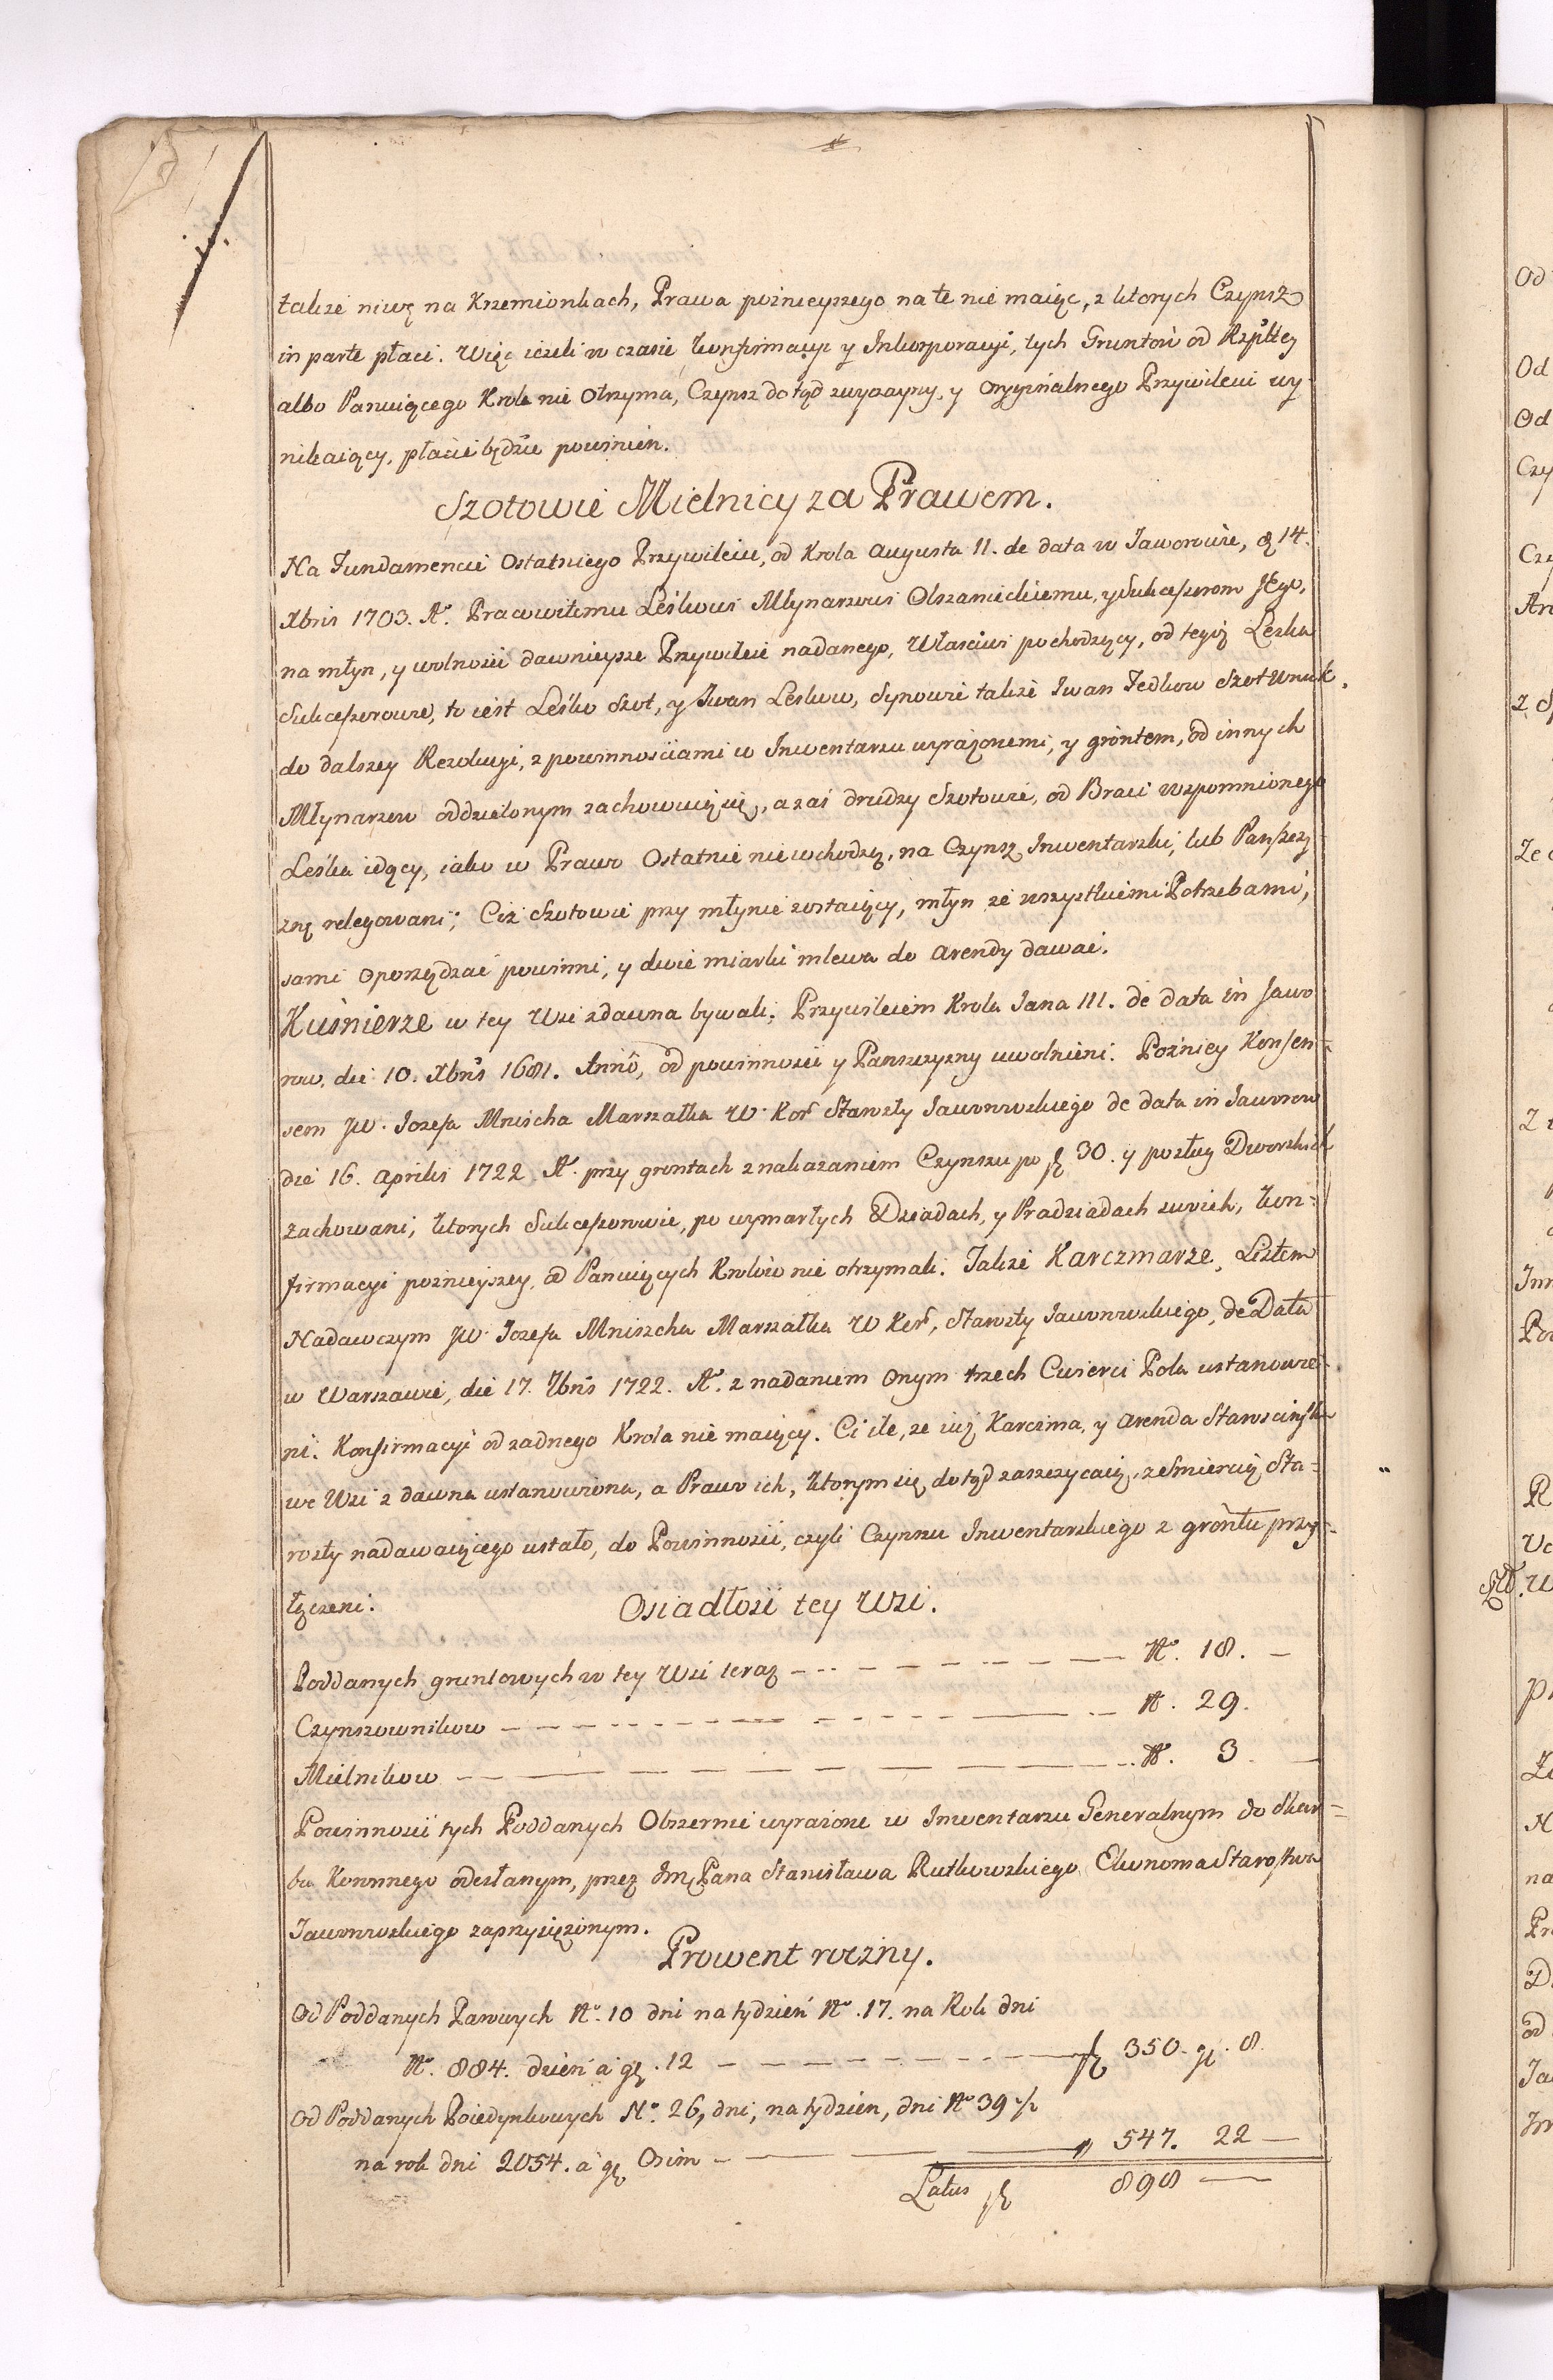 także niwę na Krzemionkach, Prawa poźnieyszego na te nie maiąc, z ktorych Czynsz
in parte płaci. Więc ieżeli w czasie konfirmacyi y Inkorporacyi, tych Gruntow od Rzpltey
albo Panuiącego Krola nie otrzyma, Czynsz dotąd zwyczayny, y oryginalnego Przywileiu wy-
nikaiący, płacić będzie powinien.
Szotowie Mielnicy za Prawem.
Na Fundamencie Ostatniego Przywileiu, od Krola Augusta II. de data w Jaworowie, 14.
Xbris 1703. Aº. Pracowitemu Leśkowi Młynarzowi Olszanickiemu, y Sukcessorom Jego,
na młyn, y wolności dawnieysze Przywileie nadanego, Właściwi pochodzący, od tegoż Leska
Sukcessorowie, to iest Leśko Szot, y Iwan Leskow, Synowie także Iwan Fedkow Szot Wnuk,
do dalszey Rezolucyi, z powinnościami w Inwentarzu wyrażonemi, y grontem, od innych
Młynarzow oddzielonym zachowuią się, a zaś drudzy Szotowie, od Braci wspomnionego
Leśka idący, iako w Prawo Ostatnie nie wchodzą, na Czynsz Inwentarski, lub Pańszczy-
znę relegowani; Ciż Szotowie przy młynie zostaiący, młyn ze wszystkiemi Potrzebami,
sami oporządzać powinni, y dwie miarki mlewa do Arendy dawać.
Kuśnierze w tey Wsi zdawna bywali, Przywileiem Krola Jana III. de data in Jawo
row, die 10. Xbris 1681. Anno, od powinności y Panszczyzny uwolnieni. Poźniey Konsen-
sem JW. Jozefa Mniszcha Marszałka W. Kor Starosty Jaworowskiego de data in Jaworow
die 16. Aprilis 1722 Aº. przy grontach z nakazaniem Czynszu po zł 30. y posług Dworskich
zachowani, ktorych Sukcessorowie, po wymarłych Dziadach, y Pradziadach swoich, kon-
firmacyi poźnieyszey, od Panuiących Krolow nie otrzymali. Także Karczmarze, Listem
Nadawczym JW. Jozefa Mniszcha Marszałka W Kor, Starosty Jaworowskiego, de Data
w Warszawie, die 17. 7bris 1722. Aº. z nadaniem onym trzech Cwierci Pola ustanowie-
ni. Konfirmacyi od żadnego Krola nie maiący. Ci ile, ze iuż Karczma, y Arenda Starościńska
we Wsi z dawna ustanowiona, a Prawo ich, ktorym się dotąd zaszczycaią, ze śmiercią Sta-
rosty nadawaiącego ustało, do Powinności, czyli Czynszu Inwentarskiego z grontu przy-
łączeni.
Osiadłość tey Wsi.
Poddanych gruntowych w tey Wsi teraz Nº. 18.
Czynszownikow Nº. 29.
Mielnikow Nº. 3
Powinności tych Poddanych Obszernie wyrażone w Inwentarzu Generalnym do Skar-
bu Koronnego odesłanym, przez Jmć Pana Stanisława Rutkowskiego Ekonoma Starostwa
Jaworowskiego zaprzysiężonym.
Prowent roczny.
Od Poddanych Parowych Nº. 10 dni na tydzień Nº. 17. na Rok dni
Nº. 884. dzień a gr. 12 zł 350. gr. 8.
Od Poddanych Poiedynkowych Nº. 26, dni, na tydzien, dni Nº 39 ½
na rok dni 2054. a gr Osim „ 547. 22
Latus zł 898